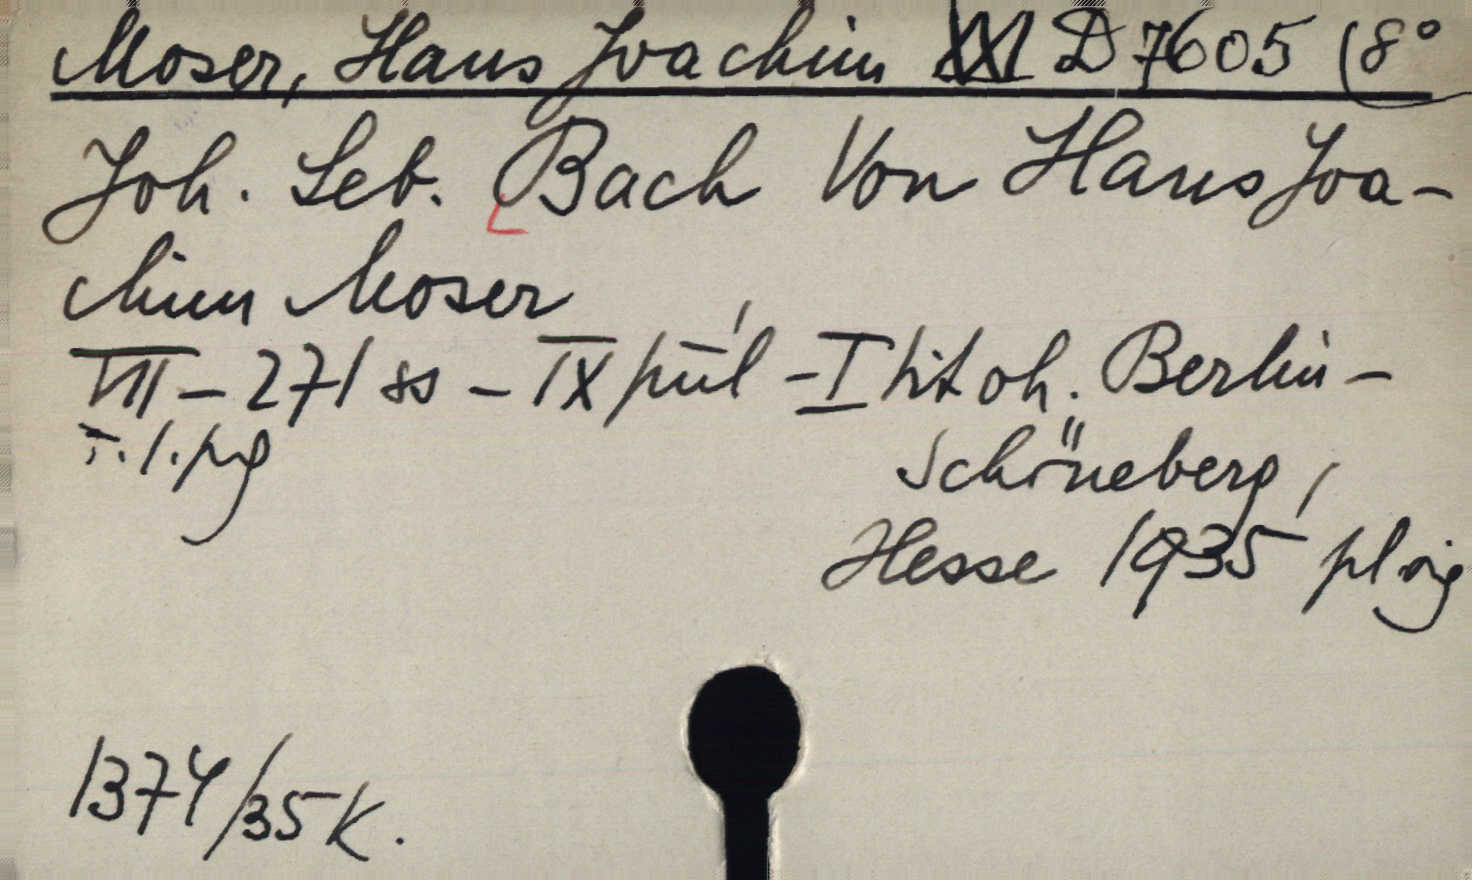 Moser, Hans Joachim XXI D 7605 (8°
Joh. Seb. Bach Von Hans Joa-
chim Moser
VIII - 271 ss - IX - I tit oh. Berlin-
Schöneberg,
Hesse 1935
1374/35 K.